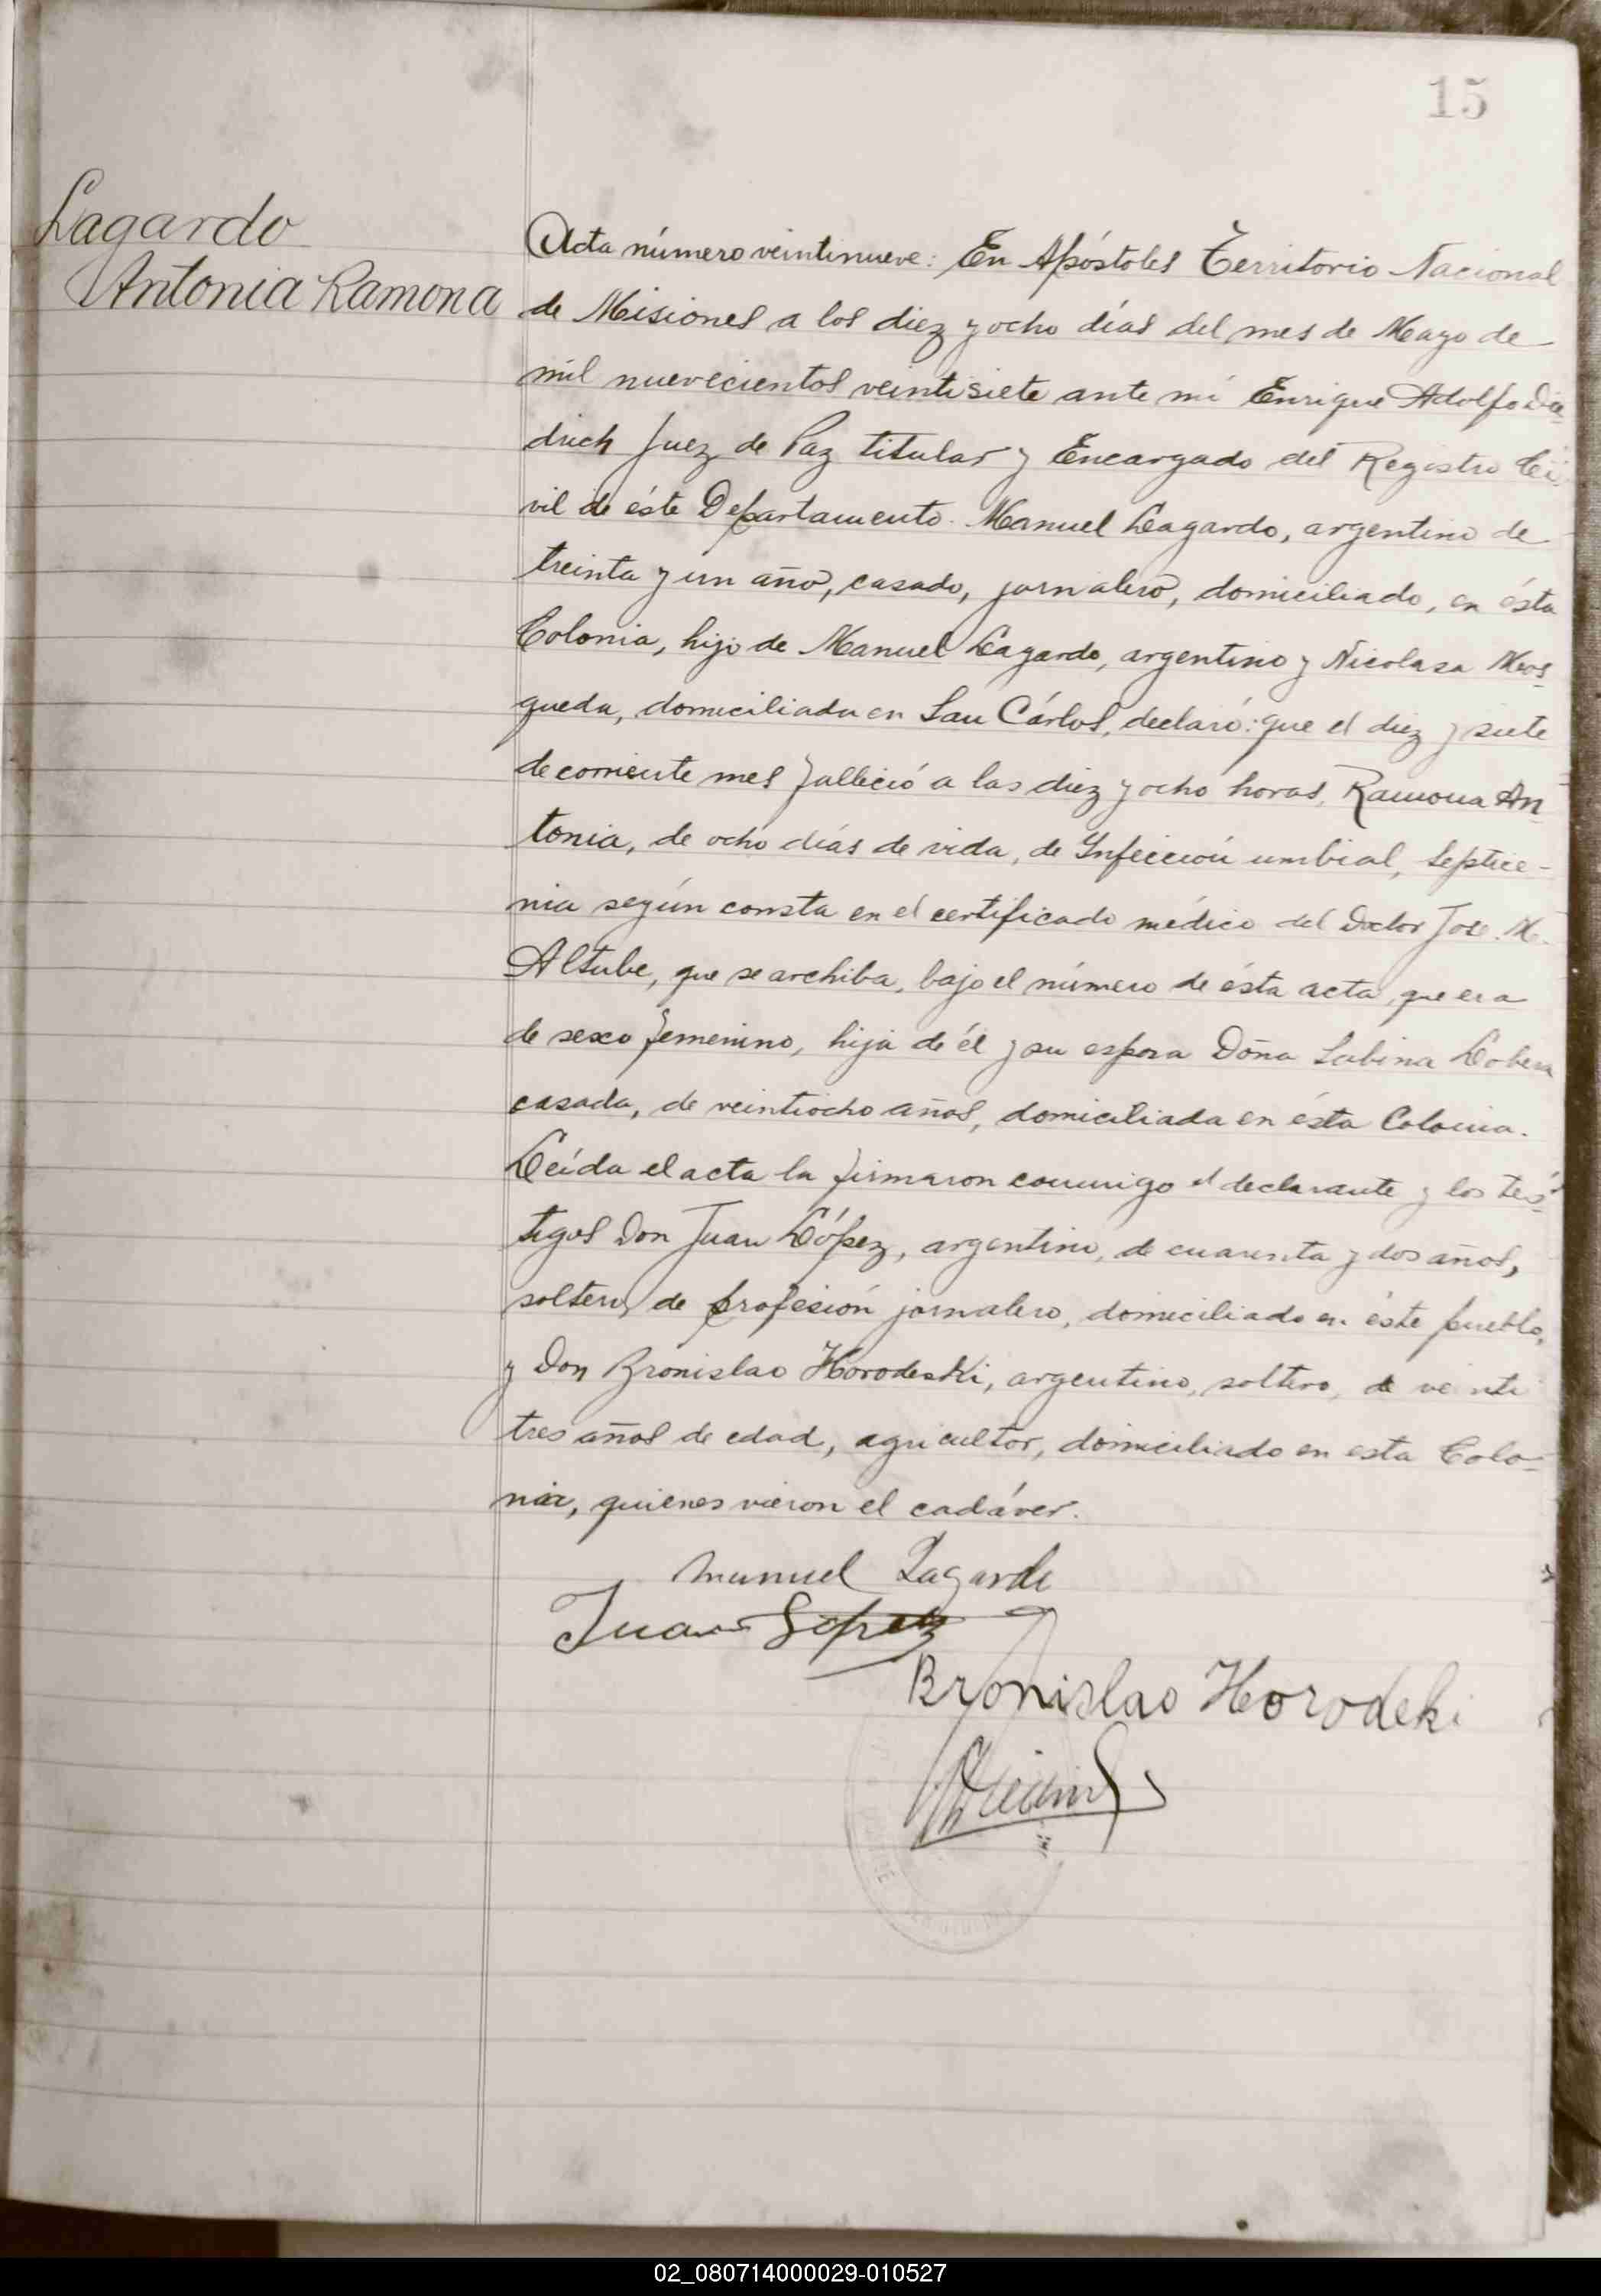 15
Lagardo
Antonia Ramona
Acta número veintinueve: En Apóstoles Territorio Nacional
de Misiones a los diez y ocho días del mes de Mayo de
mil nuevecientos veintisiete ante mi Enrique Adolfo Die-
drich Juez de Paz titular y Encargado del Registro Ci-
vil de éste Departamento. Manuel Lagardo, argentino de
treinta y un año, casado, jornalero, domiciliado, en ésta
Colonia, hijo de Manuel Lagardo, argentino y Nicolasa Mos-
queda, domiciliada en San Cárlos, declaró: que el diez y siete
de corriente mes falleció a las diez y ocho horas, Ramona An-
tonia, de ocho días de vida, de Infección umbial, septice-
nia según consta en el certificado médico del Doctor José. M.
Altube, que se archiba, bajo el número de ésta acta, que era
de sexo femenino, hija de él y su esposa Doña Sabina
casada, de veintiocho años, domiciliada en ésta Colonia.
Leída el acta la firmaron conmigo el declarante y los tes-
tigos Don Juan López, argentino, de cuarenta y dos años,
soltero, de profesión jornalero, domiciliado en éste pueblo,
y Don Bronislao Horodeski, argentino, soltero, de veinti
tres años de edad, agricultor, domiciliado en esta Colo-
nia, quienes vieron el cadáver.
Manuel Lagardo
Juan Lopez
Bronislao Horodeki
02_080714000029-010527